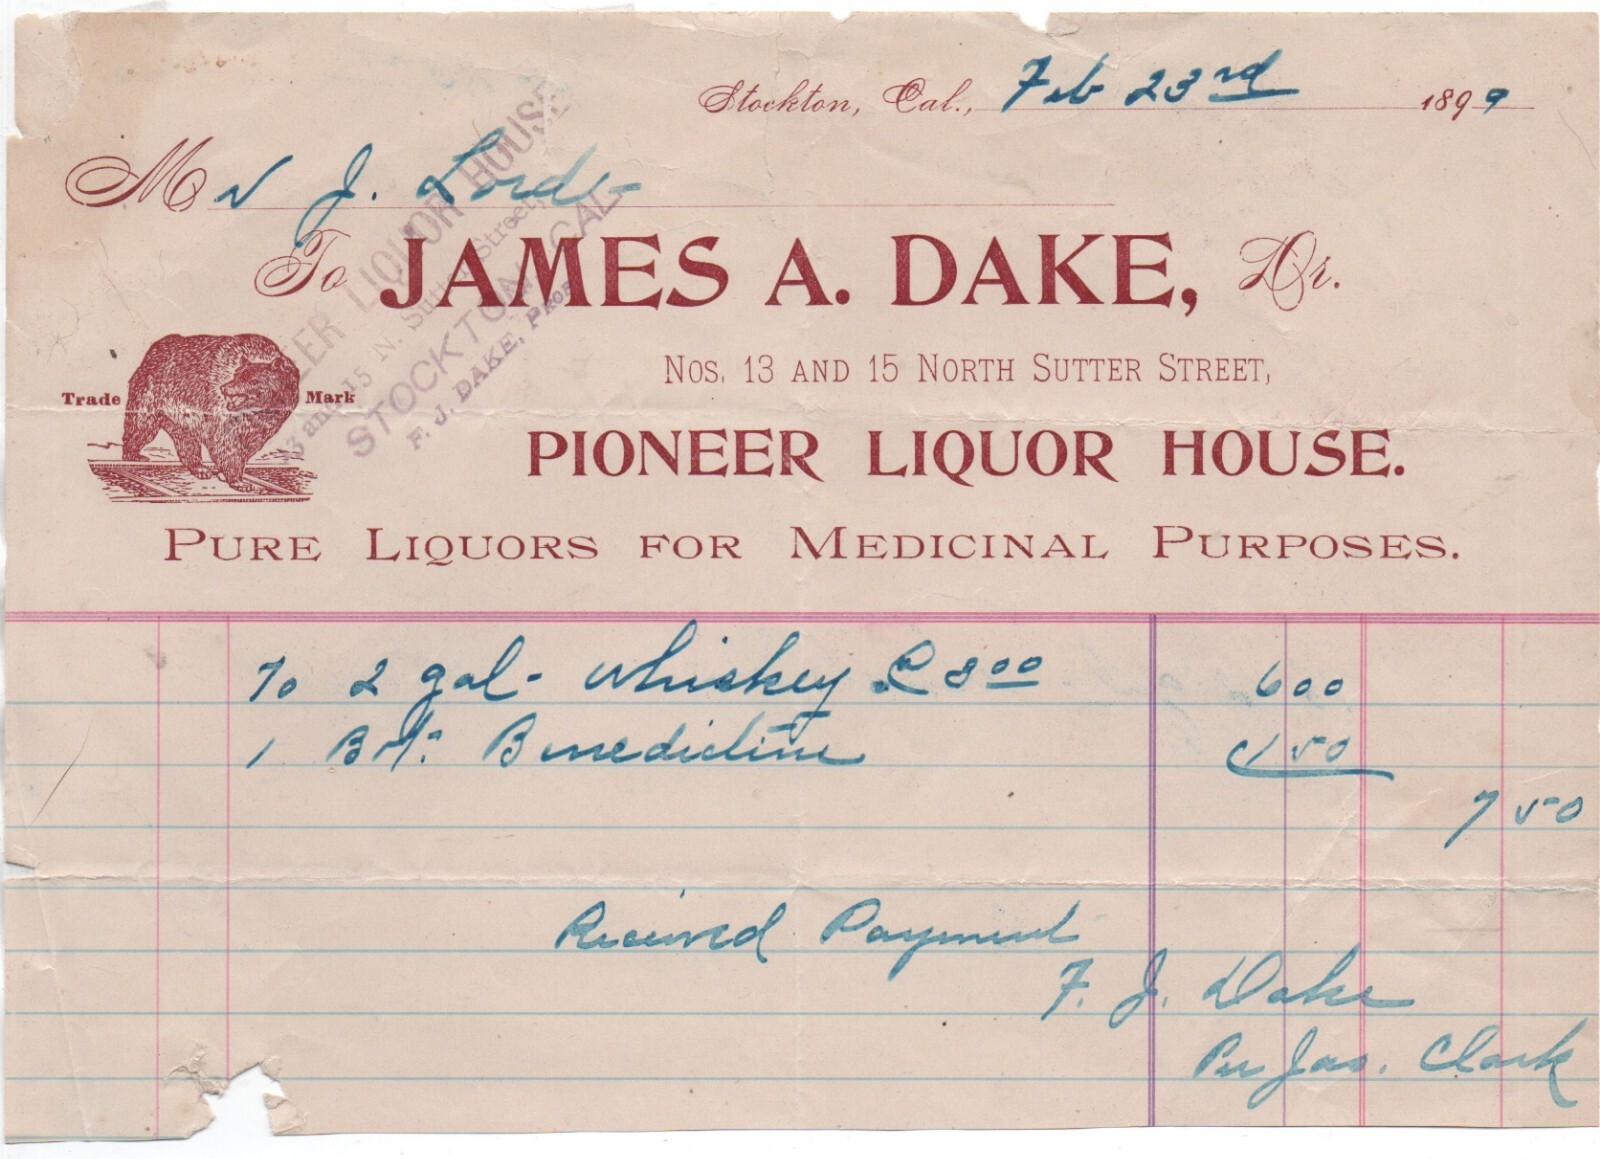 Stockton, Cal., Feb 23rd 1899
Mr J. Lords
To JAMES A. DAKE, Dr.
Nos. 13 AND 15 NORTH SUTTER STREET,
Trade Mark
PIONEER LIQUOR HOUSE.
PURE LIQUORS FOR MEDICINAL PURPOSES.
EER LIQUOR HOUSE
13 and 15 N. Sutter Street,
STOCKTON, CAL.
F. J. DAKE, PROP
To 2 gal- Whiskey @ 300 600
1 Bot. Benedictine 150
750
Received Payment
F. J. Dake
Per Jas. Clark